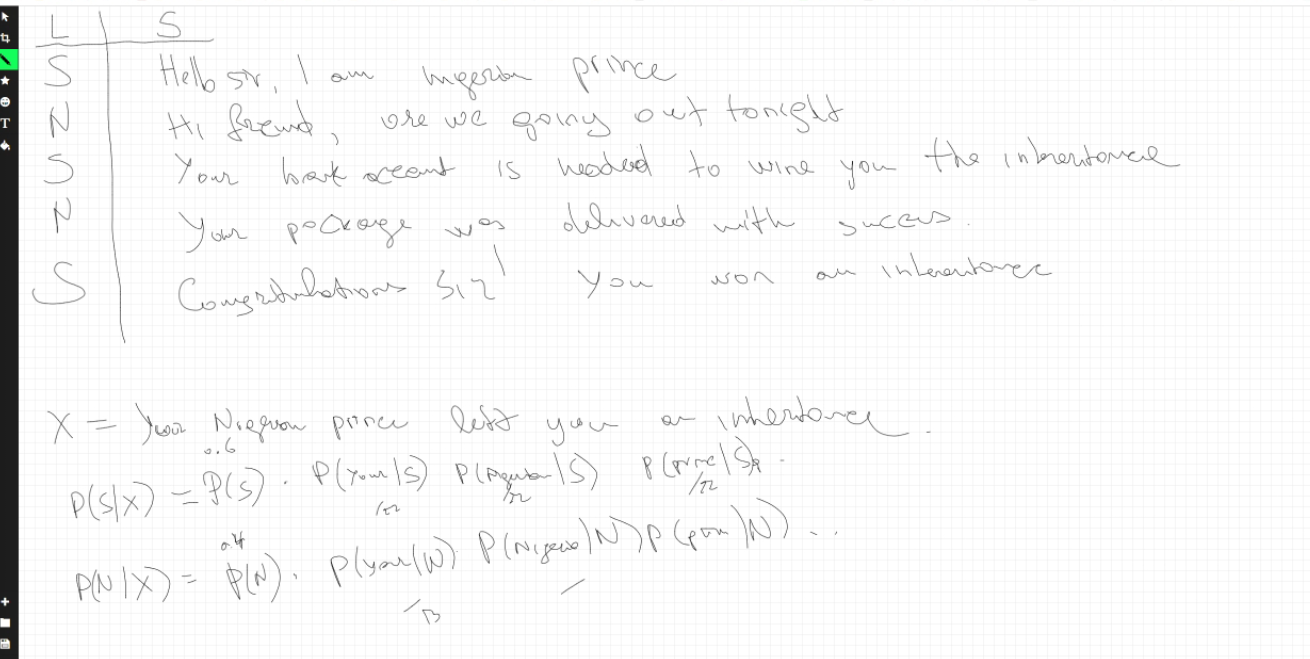 L S
S Hello sir, I am nigerian prince
N Hi friend, are we going out tonight
S Your bank account is needed to wire you the inheritance
N Your package was delivered with succes.
S Congratulations Sir! You won an inheritance
X = Your Nigerian prince left you an inheritance.
0.6
P(S|X) = P(S) . P(your|S) P(Nigerian|S) P(prince|S) .
/22 /22 /22
0.4
P(N|X) = P(N) . P(your|N) . P(Nigerian|N) P(prince|N) ...
/13